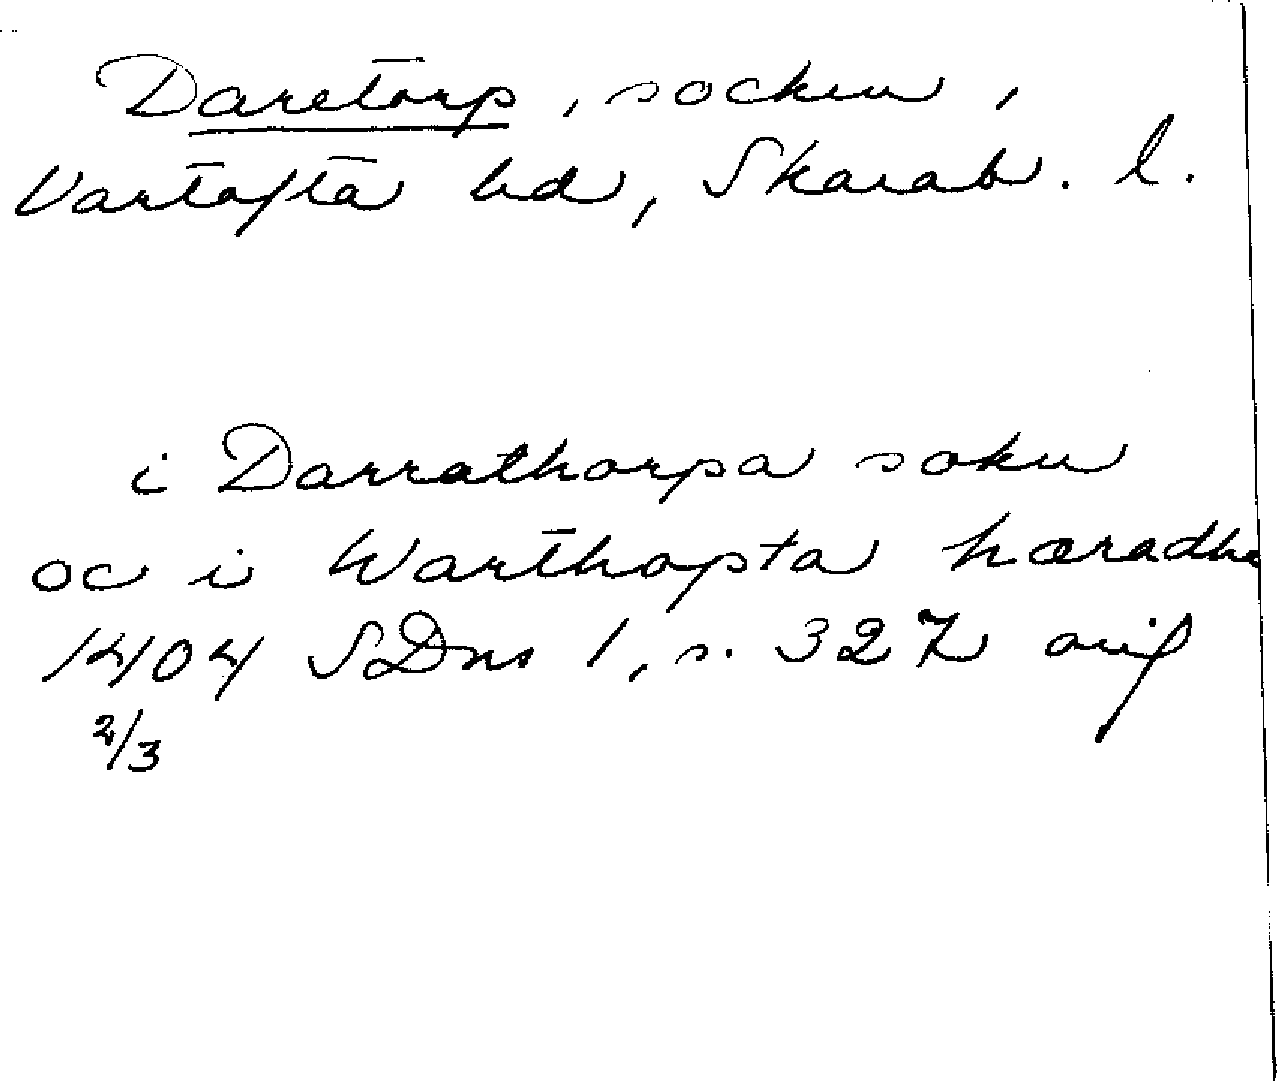 Daretorp, socken,
Vartofta hd, Skarab. l.
i Darrathorpa sokn
oc i Warthopta hæradhe
1404 SDns 1, s. 327 orig
2/3